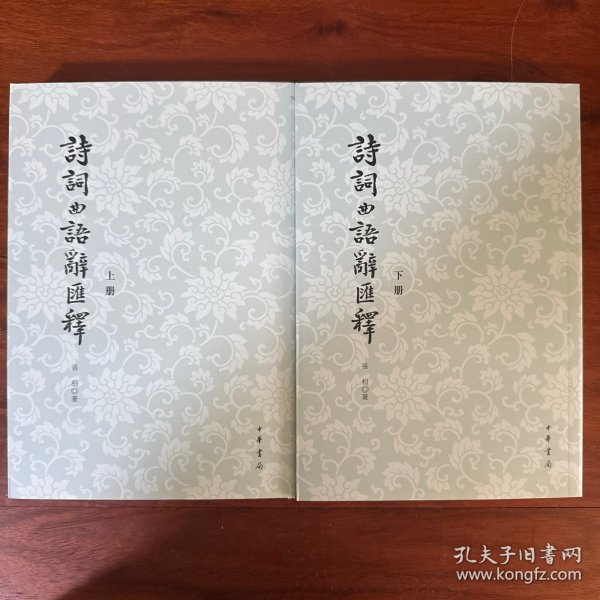 詩詞曲語辭匯釋
上册
張相◎著
中華書局
詩詞曲語辭匯釋
下册
張相◎著
中華書局
孔夫子旧书网
www.kongfz.com